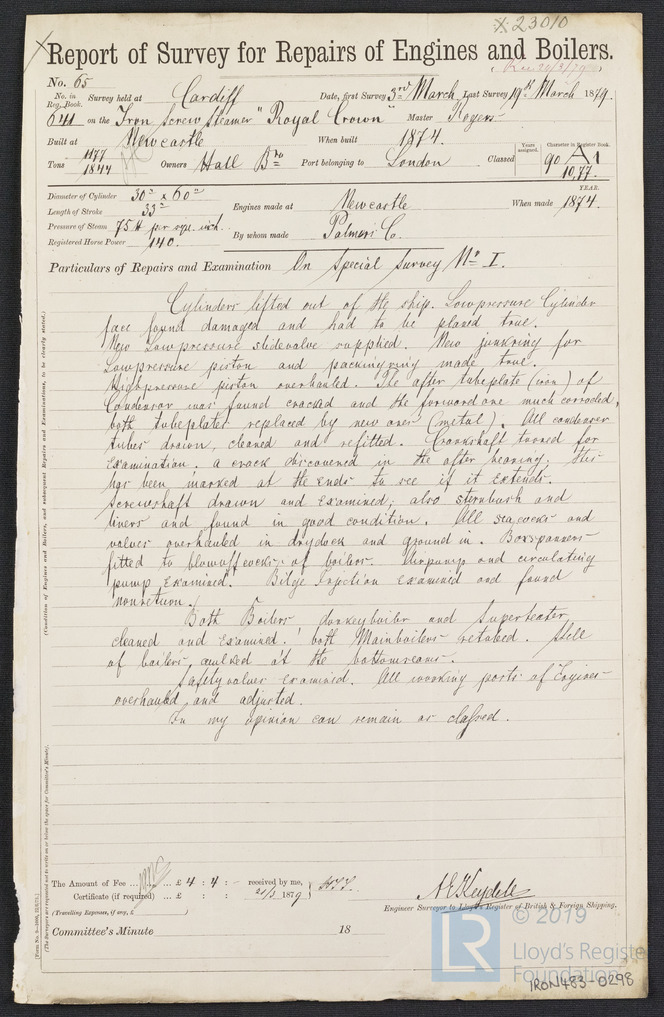 X 23010
Report of Survey for Repairs of Engines and Boilers.
Rec 24/3/79
No. 65
No. in Reg. Book. Survey held at Cardiff Date, first Survey 3rd March Last Survey 19th March 1879.
641 on the Iron Screw Steamer "Royal Crown" Master Rogers
Built at Newcastle When built 1874.
Tons 1177 1844 Owners Hall Bro Port belonging to London Classed Years assigned. 90 Character in Register Book. A1 10,77.
YEAR.
Diameter of Cylinder 30" x 60"
Length of Stroke 33" Engines made at Newcastle When made 1874.
Pressure of Steam 75 lb per sqre inch
Registered Horse Power 140. By whom made Palmers C.
Particulars of Repairs and Examination On Special Survey No I.
Cylinders lifted out of the ship. Lowpressure Cylinder
face found damaged and had to be planed true.
New Lowpressure slidevalve supplied. New junkring for
Lowpressure piston and packingring made true.
Highpressure piston overhauled. The after tubeplate (iron) of
Condensor was found cracked and the forward one much corroded,
both tubeplates replaced by new ones (metal). All condenser
tubes drawn, cleaned and refitted. Crankshaft turned for
examination. a crack discovered in the after bearing, this
has been marked at the ends to see if it extends.
Screwshaft drawn and examined, also sternbush and
liners and found in good condition. All seacocks and
valves overhauled in drydock and ground in. Boxspanners
fitted to blowoffcocks of boilers. Airpump and circulating
pump examined. Bilge Injection examined and found
nonreturn.
Both Boilers donkeyboiler and Superheater
cleaned and examined. both Mainboilers retubed. Shell
of boilers, caulked at the bottomseams.
Safetyvalves examined. All working parts of Engines
overhauled and adjusted.
In my opinion can remain as classed.
(Condition of Engines and Boilers, and subsequent Repairs and Examinations, to be clearly stated.)
(The Surveyors are requested not to write on or below the space for Committee's Minute.)
The Amount of Fee ... £ 4 : 4 : - received by me,
Certificate (if required) ... £ : : 21/3 1879
(Travelling Expense, if any, £ )
Engineer Surveyor to Lloyd's Register of British & Foreign Shipping.
Committee's Minute 18
© 2019
LR
Lloyd's Register
Foundation
IRON483-0298